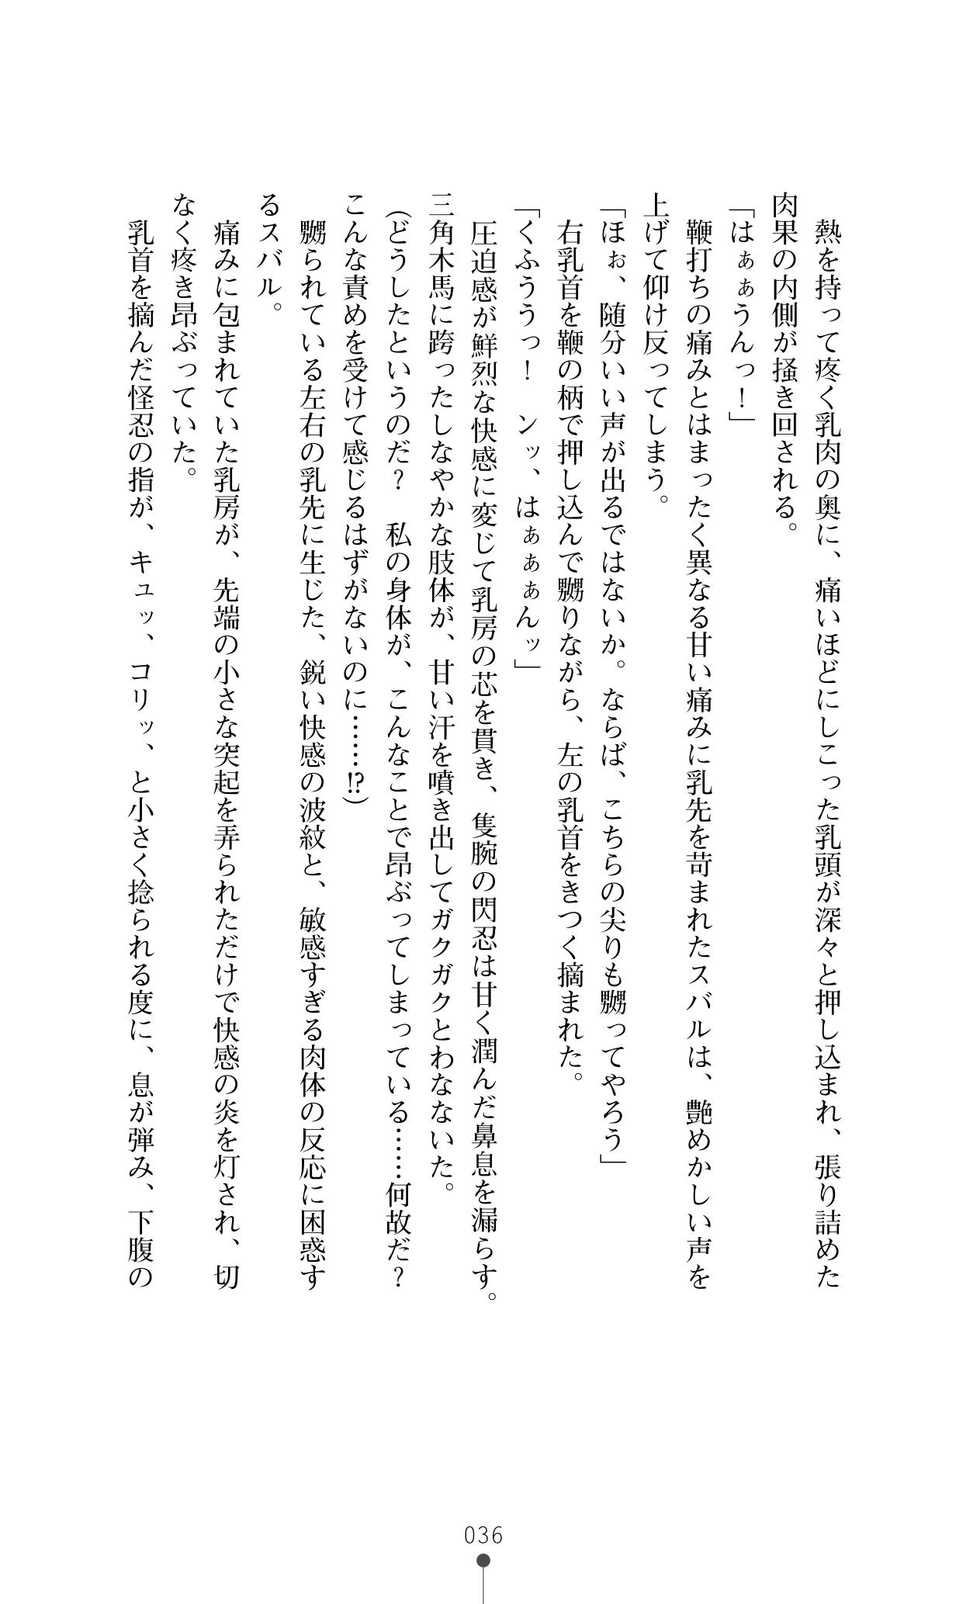 熱を持って疼く乳肉の奥に、痛いほどにしこった乳頭が深々と押し込まれ、張り詰めた
肉果の内側が掻き回される。
「はぁぁうんっ！」
鞭打ちの痛みとはまったく異なる甘い痛みに乳先を苛まれたスバルは、艶めかしい声を
上げて仰け反ってしまう。
「ほぉ、随分いい声が出るではないか。ならば、こちらの尖りも嬲ってやろう」
右乳首を鞭の柄で押し込んで嬲りながら、左の乳首をきつく摘まれた。
「くふううっ！　ンッ、はぁぁぁんッ」
圧迫感が鮮烈な快感に変じて乳房の芯を貫き、隻腕の閃忍は甘く潤んだ鼻息を漏らす。
三角木馬に跨ったしなやかな肢体が、甘い汗を噴き出してガクガクとわなないた。
（どうしたというのだ？　私の身体が、こんなことで昂ぶってしまっている……何故だ？
こんな責めを受けて感じるはずがないのに……⁉）
嬲られている左右の乳先に生じた、鋭い快感の波紋と、敏感すぎる肉体の反応に困惑す
るスバル。
痛みに包まれていた乳房が、先端の小さな突起を弄られただけで快感の炎を灯され、切
なく疼き昂ぶっていた。
乳首を摘んだ怪忍の指が、キュッ、コリッ、と小さく捻られる度に、息が弾み、下腹の
036